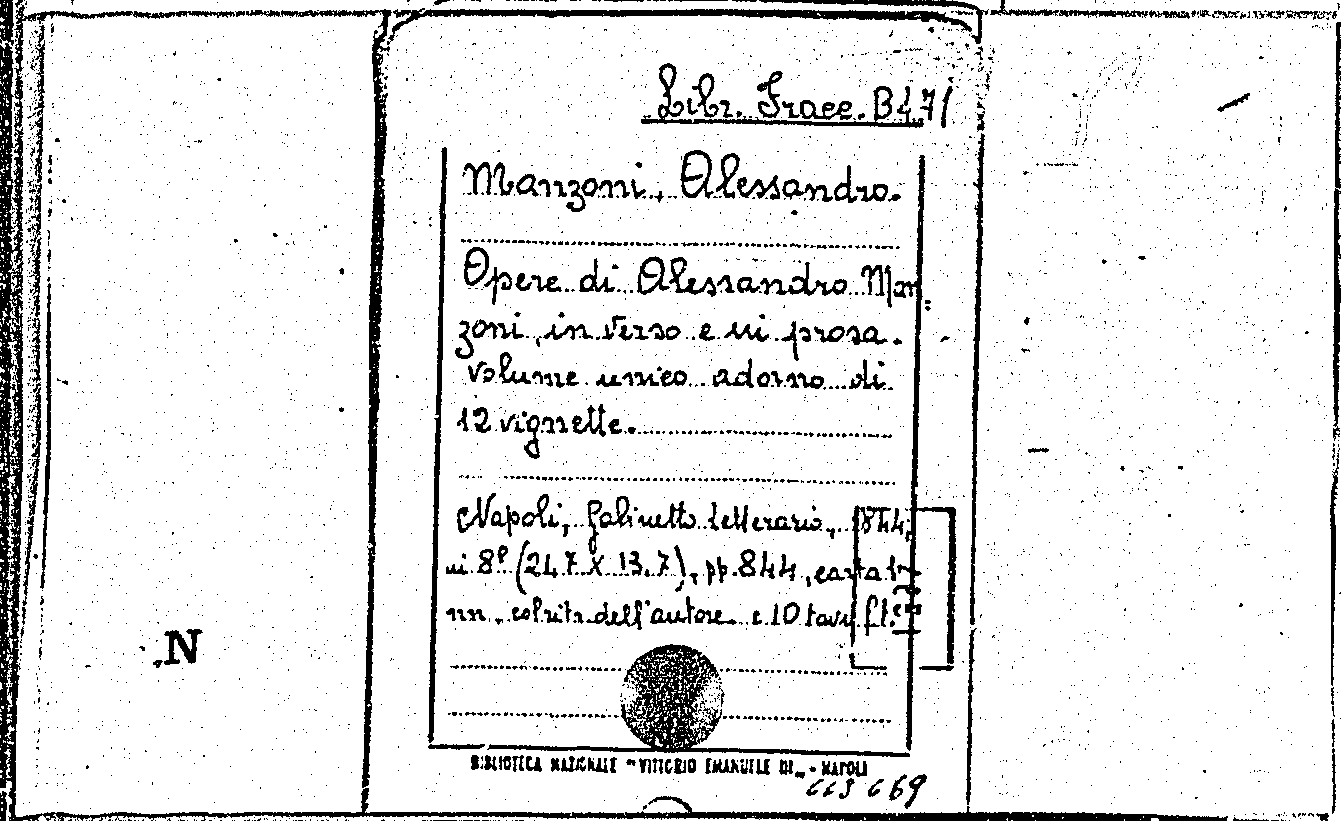 Libr. Fracc. B 471
Manzoni, Alessandro.
Opere di Alessandro Man
zoni, in verso e in prosa.
volume unico adorno di
12 vignette.
Napoli, Gabinetto letterario, 1844;
in 8º (21,7 x 13,7), pp. 844, carta
nn. col ritr. dell'autore e 10 tav. f.t.
N
BIBLIOTECA NAZIONALE "VITTORIO EMANUELE III" - NAPOLI
669